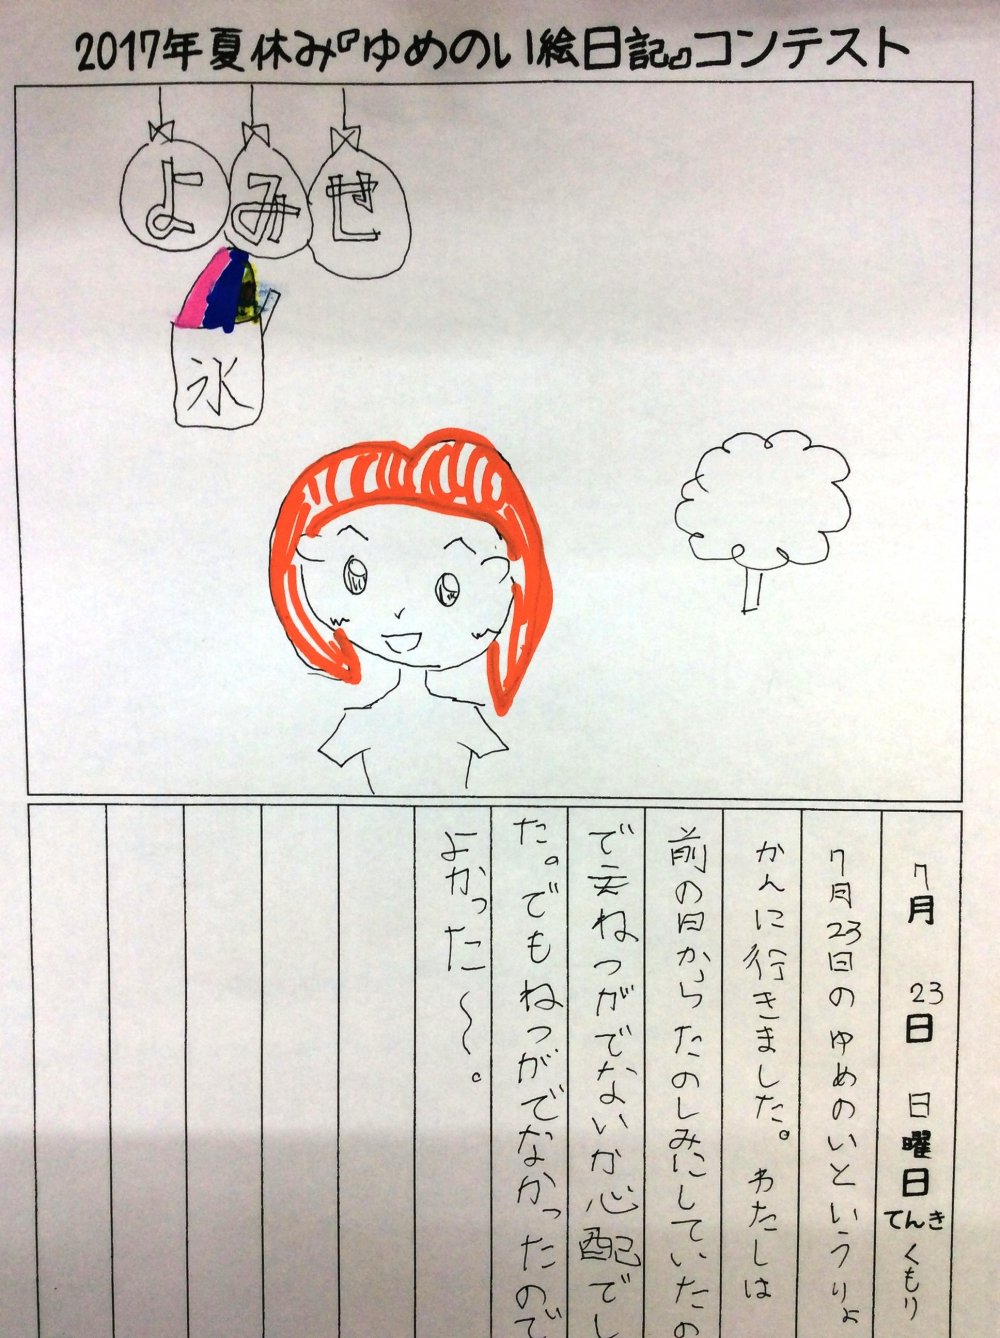 2017年夏休み『ゆめのい絵日記』コンテスト
よみせ
氷
7月 23日 日曜日 てんき くもり
7月23日のゆめのいというりょ
かんに行きました。わたしは
前の日からたのしみにしていたの
で去ねつがでないか心配でし
た。でもねつがでなかったので
よかった〜。